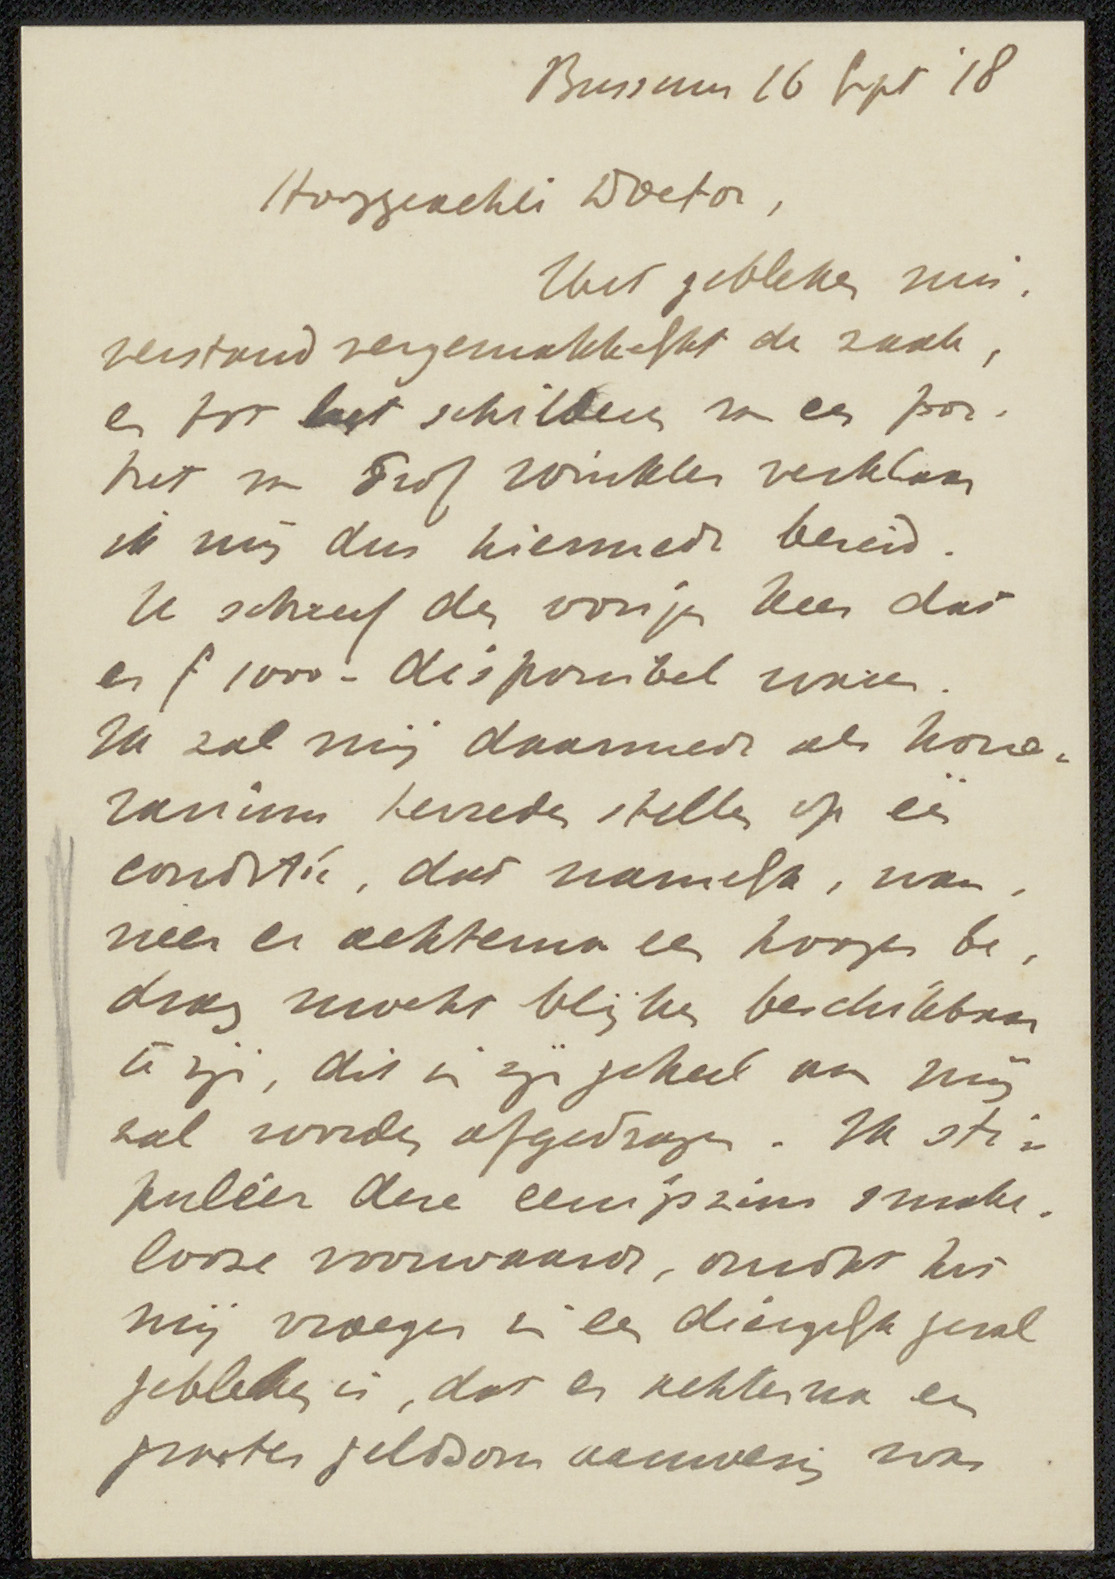 Bussum 16 Sept '18
Hooggeachte Doctor,
Het gebleken mis-
verstand vergemakkelijkt de zaak,
en tot het schilderen van een por-
tret van Prof Winkler verklaar
ik mij dus hiermede bereid.
U schreef den vorigen keer dat
er f 1000.- disponibel waren.
Ik zal mij daarmede als hono-
rarium tevreden stellen op één
conditie, dat namelijk, wan-
neer er achterna een hooger be-
drag mocht blijken beschikbaar
te zijn, dit in zijn geheel aan mij
zal worden afgedragen. Ik sti-
puleer deze eenigszins smake-
looze voorwaarde, omdat het
mij vroeger in een diergelijk geval
gebleken is, dat er achterna een
grooter geldsom aanwezig was